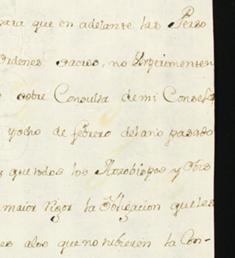 para que en adelante las Perso
Ordenes sacros, no experimenten
sobre Consulta de mi Consejo
y ocho de febrero del año pasado
que todos los Arzobispos y Obis
maior rigor la obligacion que les
es alos que no tubieren la Con-